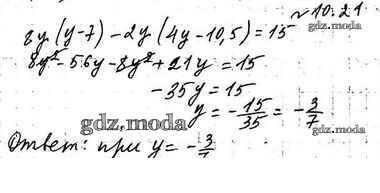 №10.21
8y(y-7)-2y(4y-10,5)=15
8y²-56y-8y²+21y=15
-35y=15
y=-15/35=-3/7
gdz.moda
gdz.moda
Ответ: при y=-3/7
gdz.moda